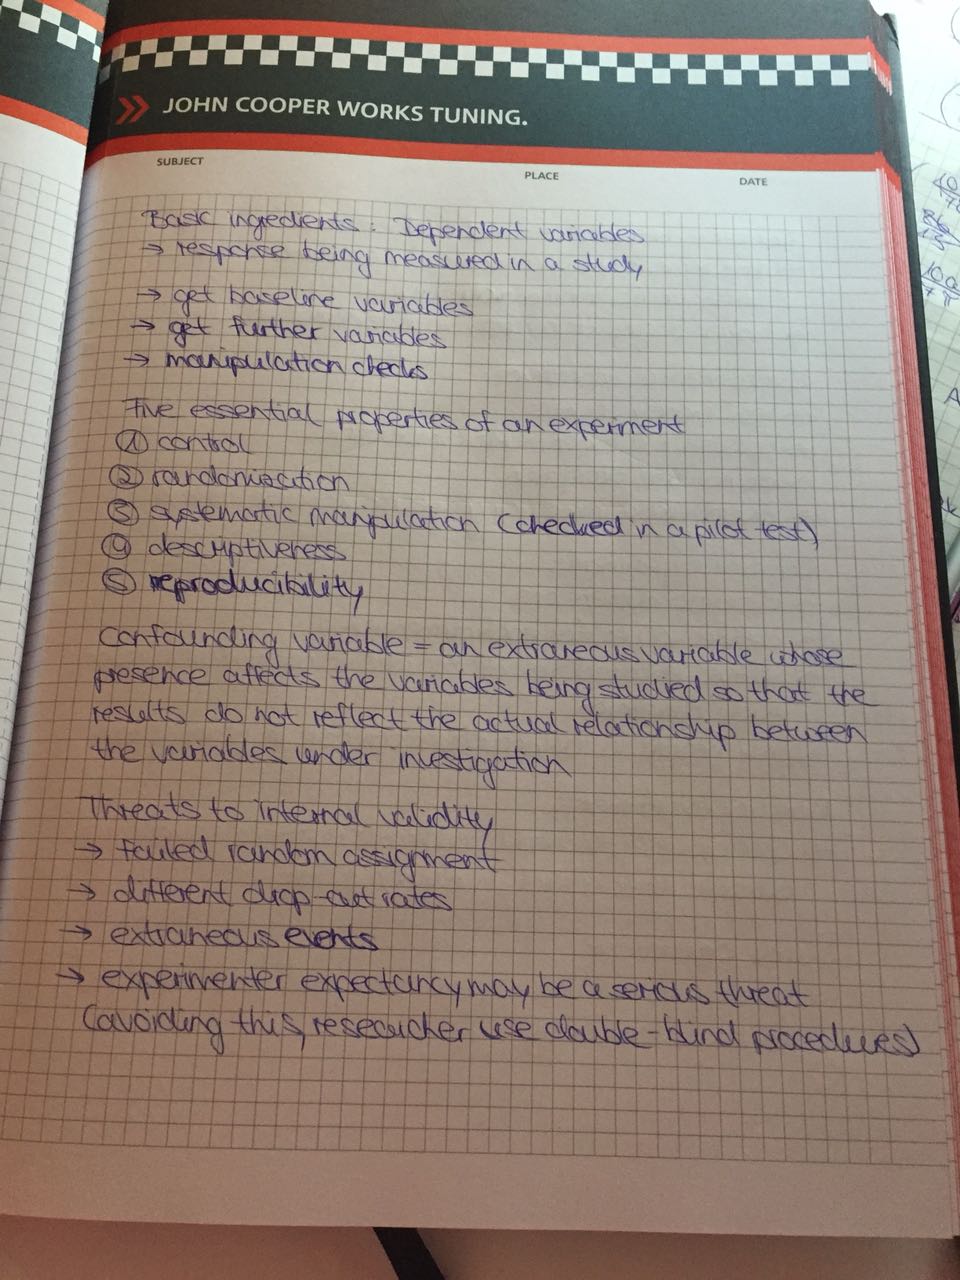 JOHN COOPER WORKS TUNING.
SUBJECT
PLACE
DATE
Basic ingredients: Dependent variables
→ response being measured in a study
→ get baseline variables
→ get further variables
→ manipulation checks
Five essential properties of an experiment
① control
② randomization
③ systematic manipulation (checked in a pilot test)
④ descriptiveness
⑤ reproducibility
Confounding variable = an extraneous variable whose
presence affects the variables being studied so that the
results do not reflect the actual relationship between
the variables under investigation
Threats to internal validity
→ failed random assignment
→ different drop-out rates
→ extraneous events
→ experimenter expectancy may be a serious threat
(avoiding this, researcher use double-blind procedures)